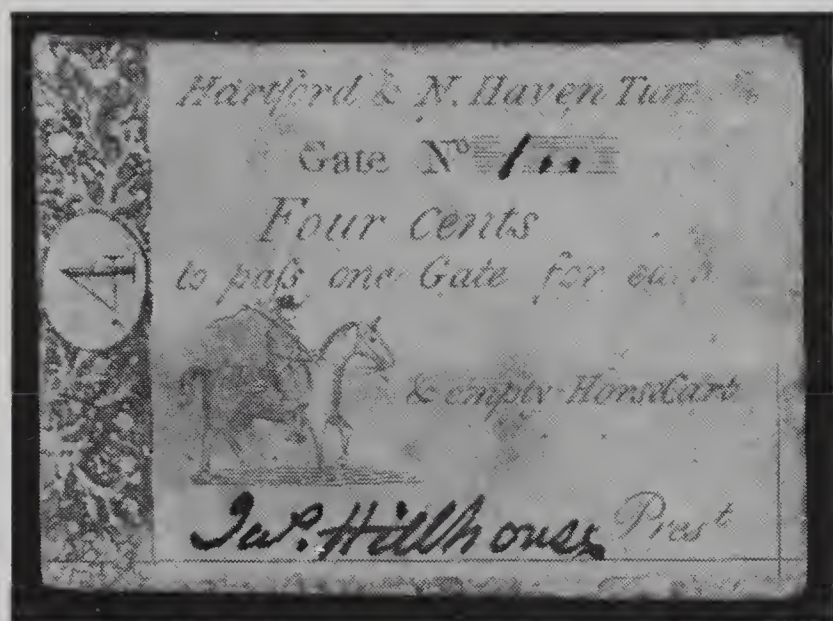 Hartford & N. Haven Turn
Gate Nº 1
Four Cents
4
to paſs one Gate for each
& empty HorseCart
Jaˢ. Hillhouse Presᵗ